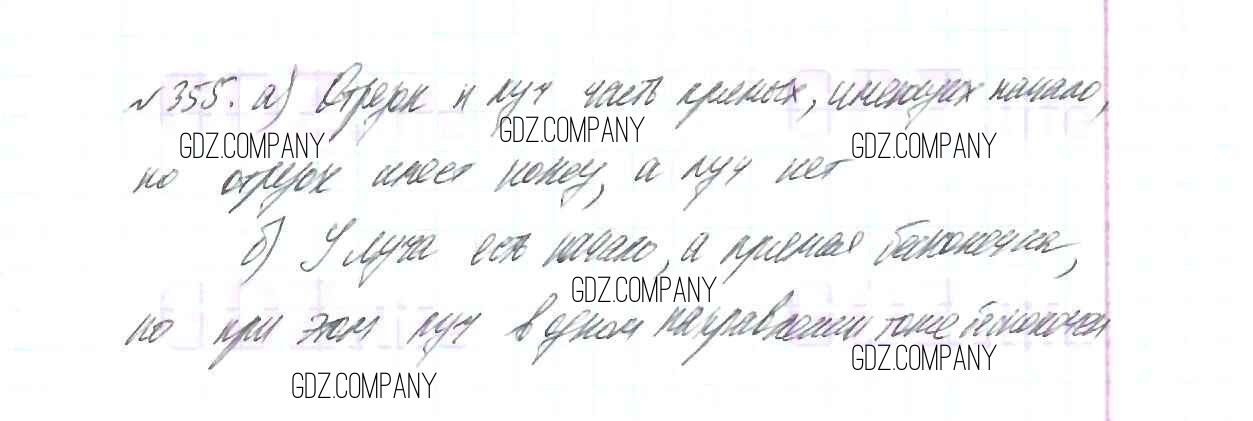 №355. а) Отрезок и луч часть прямых, имеющих начало,
GDZ.COMPANY GDZ.COMPANY GDZ.COMPANY
но отрезок имеет конец, а луч нет
б) У луча есть начало, а прямая бесконечна,
GDZ.COMPANY
но при этом луч в одном направлении тоже бесконечен
GDZ.COMPANY
GDZ.COMPANY